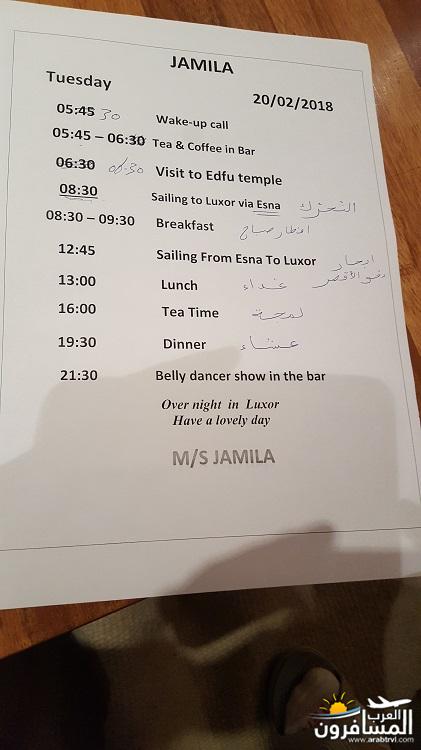 JAMILA
Tuesday 20/02/2018
05:45 30 Wake-up call
05:45 – 06:30 Tea & Coffee in Bar
06:30 Visit to Edfu temple
08:30 Sailing to Luxor via Esna التحرك
08:30 – 09:30 Breakfast افطار صباح
12:45 Sailing From Esna To Luxor ابحار
13:00 Lunch غداء نحو الأقصر
16:00 Tea Time لمجة
19:30 Dinner عشاء
21:30 Belly dancer show in the bar
Over night in Luxor
Have a lovely day
M/S JAMILA
العرب
المسافرون
www.arabtrvl.com